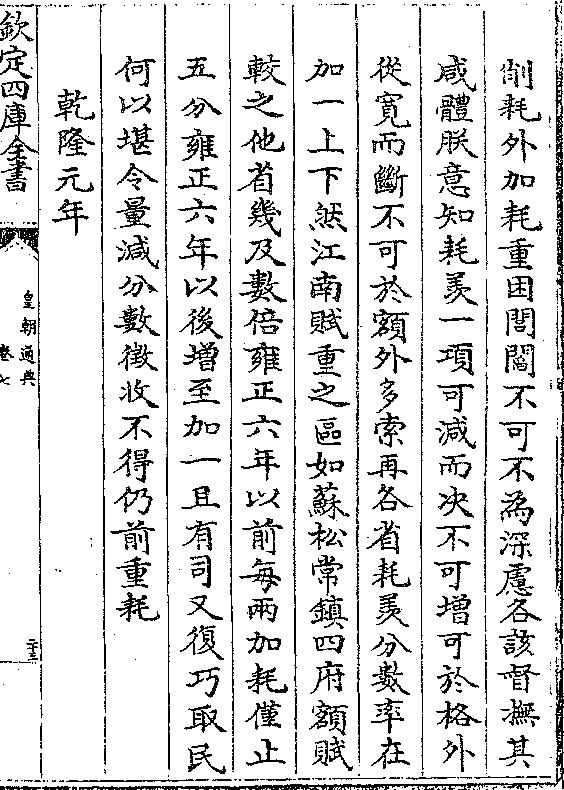 削耗外加耗重困閭閻不可不為深慮各該督撫其
咸體朕意知耗羡一項可減而决不可增可於格外
從寛而斷不可於額外多索再各省耗羡分數率在
加一上下然江南賦重之區如蘇松常鎮四府額賦
較之他省幾及數倍雍正六年以前每兩加耗僅止
五分雍正六年以後增至加一且有司又復巧取民
何以堪令量減分數徴收不得仍前重耗
乾隆元年
欽定四庫全書
皇朝通典
卷七
二十三